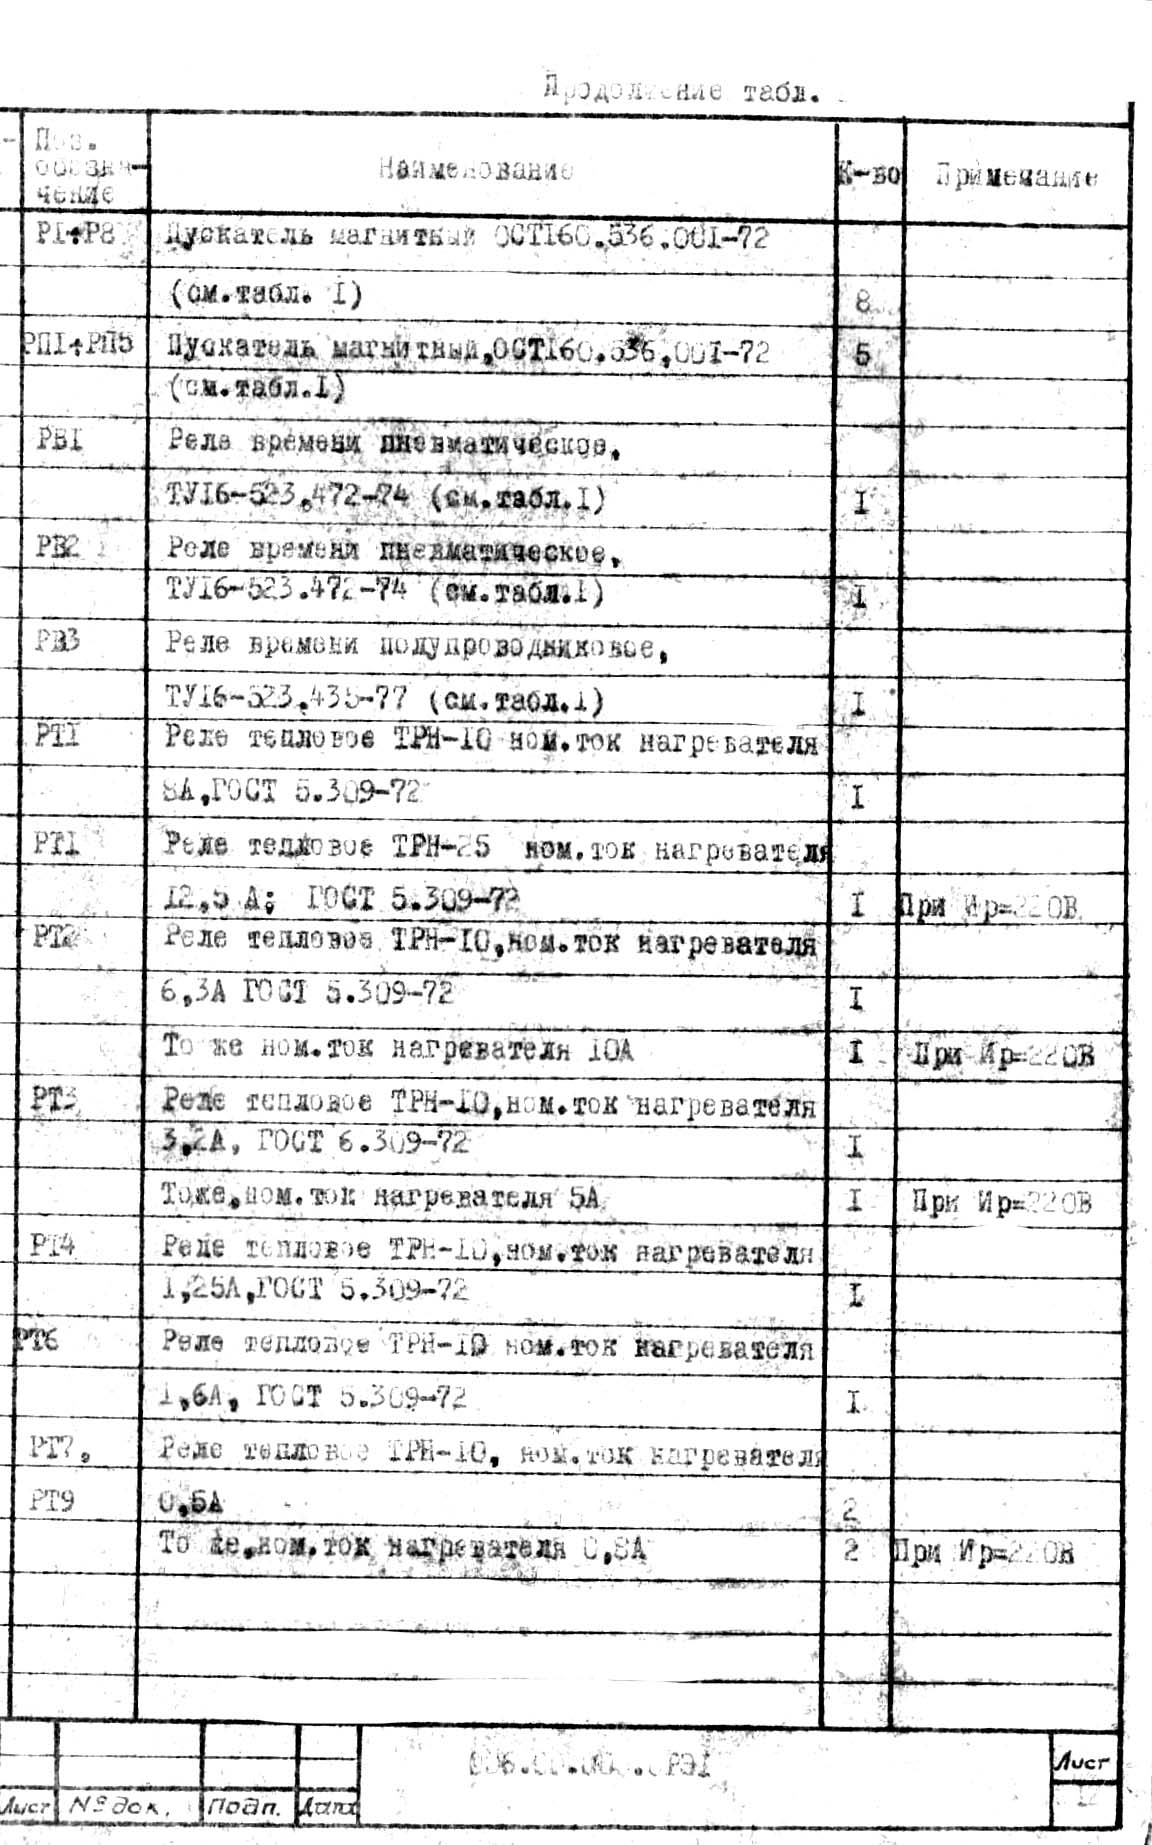 Продолжение табл.
Поз. обозна- чение Наименование К-во Примечание
Р1÷Р8 Пускатель магнитный ОСТ160.536.001-72
(см.табл. 1) 8
РП1÷РП5 Пускатель магнитный,ОСТ160.536,001-72 5
(см.табл.1)
РВ1 Реле времени пневматическое,
ТУ16-523.472-74 (см.табл.1) 1
РВ2 Реле времени пневматическое,
ТУ16-523.472-74 (см.табл.1) 1
РВ3 Реле времени полупроводниковое,
ТУ16-523.435-77 (см.табл.1) 1
РТ1 Реле тепловое ТРН-10 ном.ток нагревателя
8А,ГОСТ 5.309-72 1
РТ1 Реле тепловое ТРН-25 ном.ток нагревателя
12,5 А; ГОСТ 5.309-72 1 При Ир=220В
РТ2 Реле тепловое ТРН-10,ном.ток нагревателя
6,3А ГОСТ 5.309-72 1
То же ном.ток нагревателя 10А 1 При Ир=220В
РТ3 Реле тепловое ТРН-10,ном.ток нагревателя
3,2А, ГОСТ 6.309-72 1
Тоже,ном.ток нагревателя 5А 1 При Ир=220В
РТ4 Реле тепловое ТРН-10,ном.ток нагревателя
1,25А,ГОСТ 5.309-72 1
РТ6 Реле тепловое ТРН-10 ном.ток нагревателя
1,6А, ГОСТ 5.309-72 1
РТ7. Реле тепловое ТРН-10, ном.ток нагревателя
РТ9 0,5А 2
То же,ном.ток нагревателя 0,8А 2 При Ир=220В
Лист
12
Лист № док. Подп. Дата